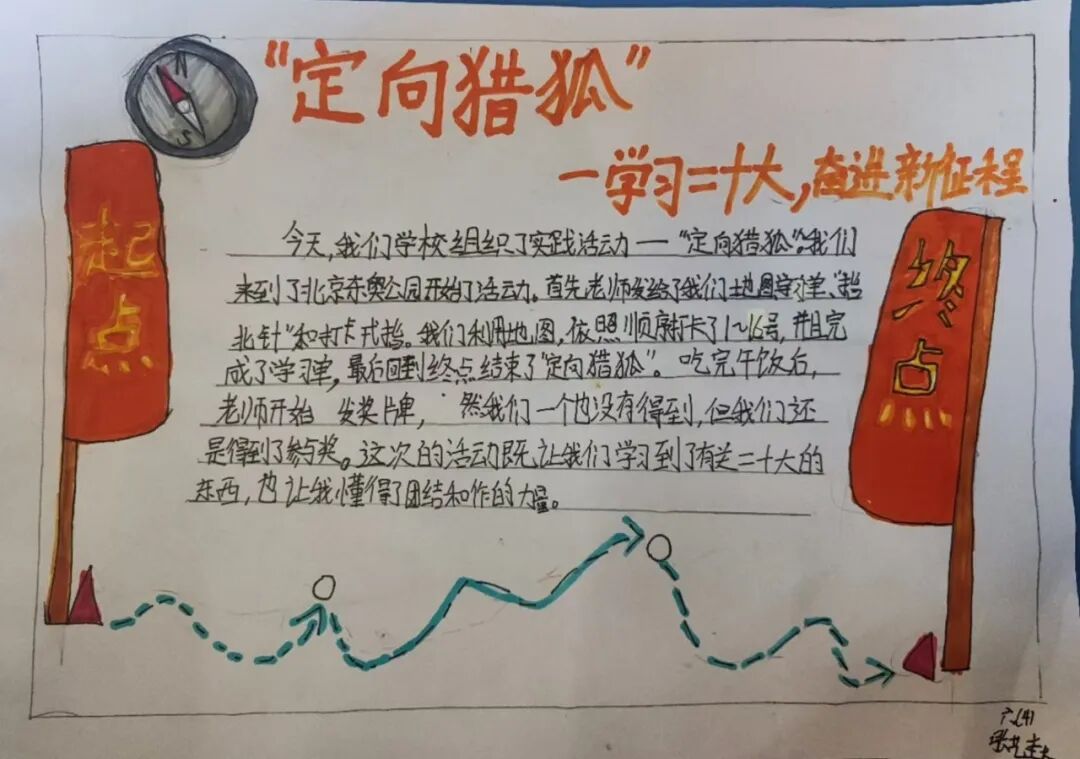 “定向猎狐”
一学习二十大，奋进新征程
起点
今天，我们学校组织了实践活动一“定向猎狐”。我们
来到了北京东奥公园开始了活动。首先老师发给了我们地图学习单、“指
北针”和打卡式指。我们利用地图，依照顺序打卡了1~16号，并且完
成了学习单，最后回到终点结束了“定向猎狐”。吃完午饭后，
老师开始 发奖牌， 然我们一个也没有得到，但我们还
是得到了参与奖。这次的活动既让我们学习到了有关二十大的
东西，也让我懂得了团结和作的力量。
终点
N
S
(4)